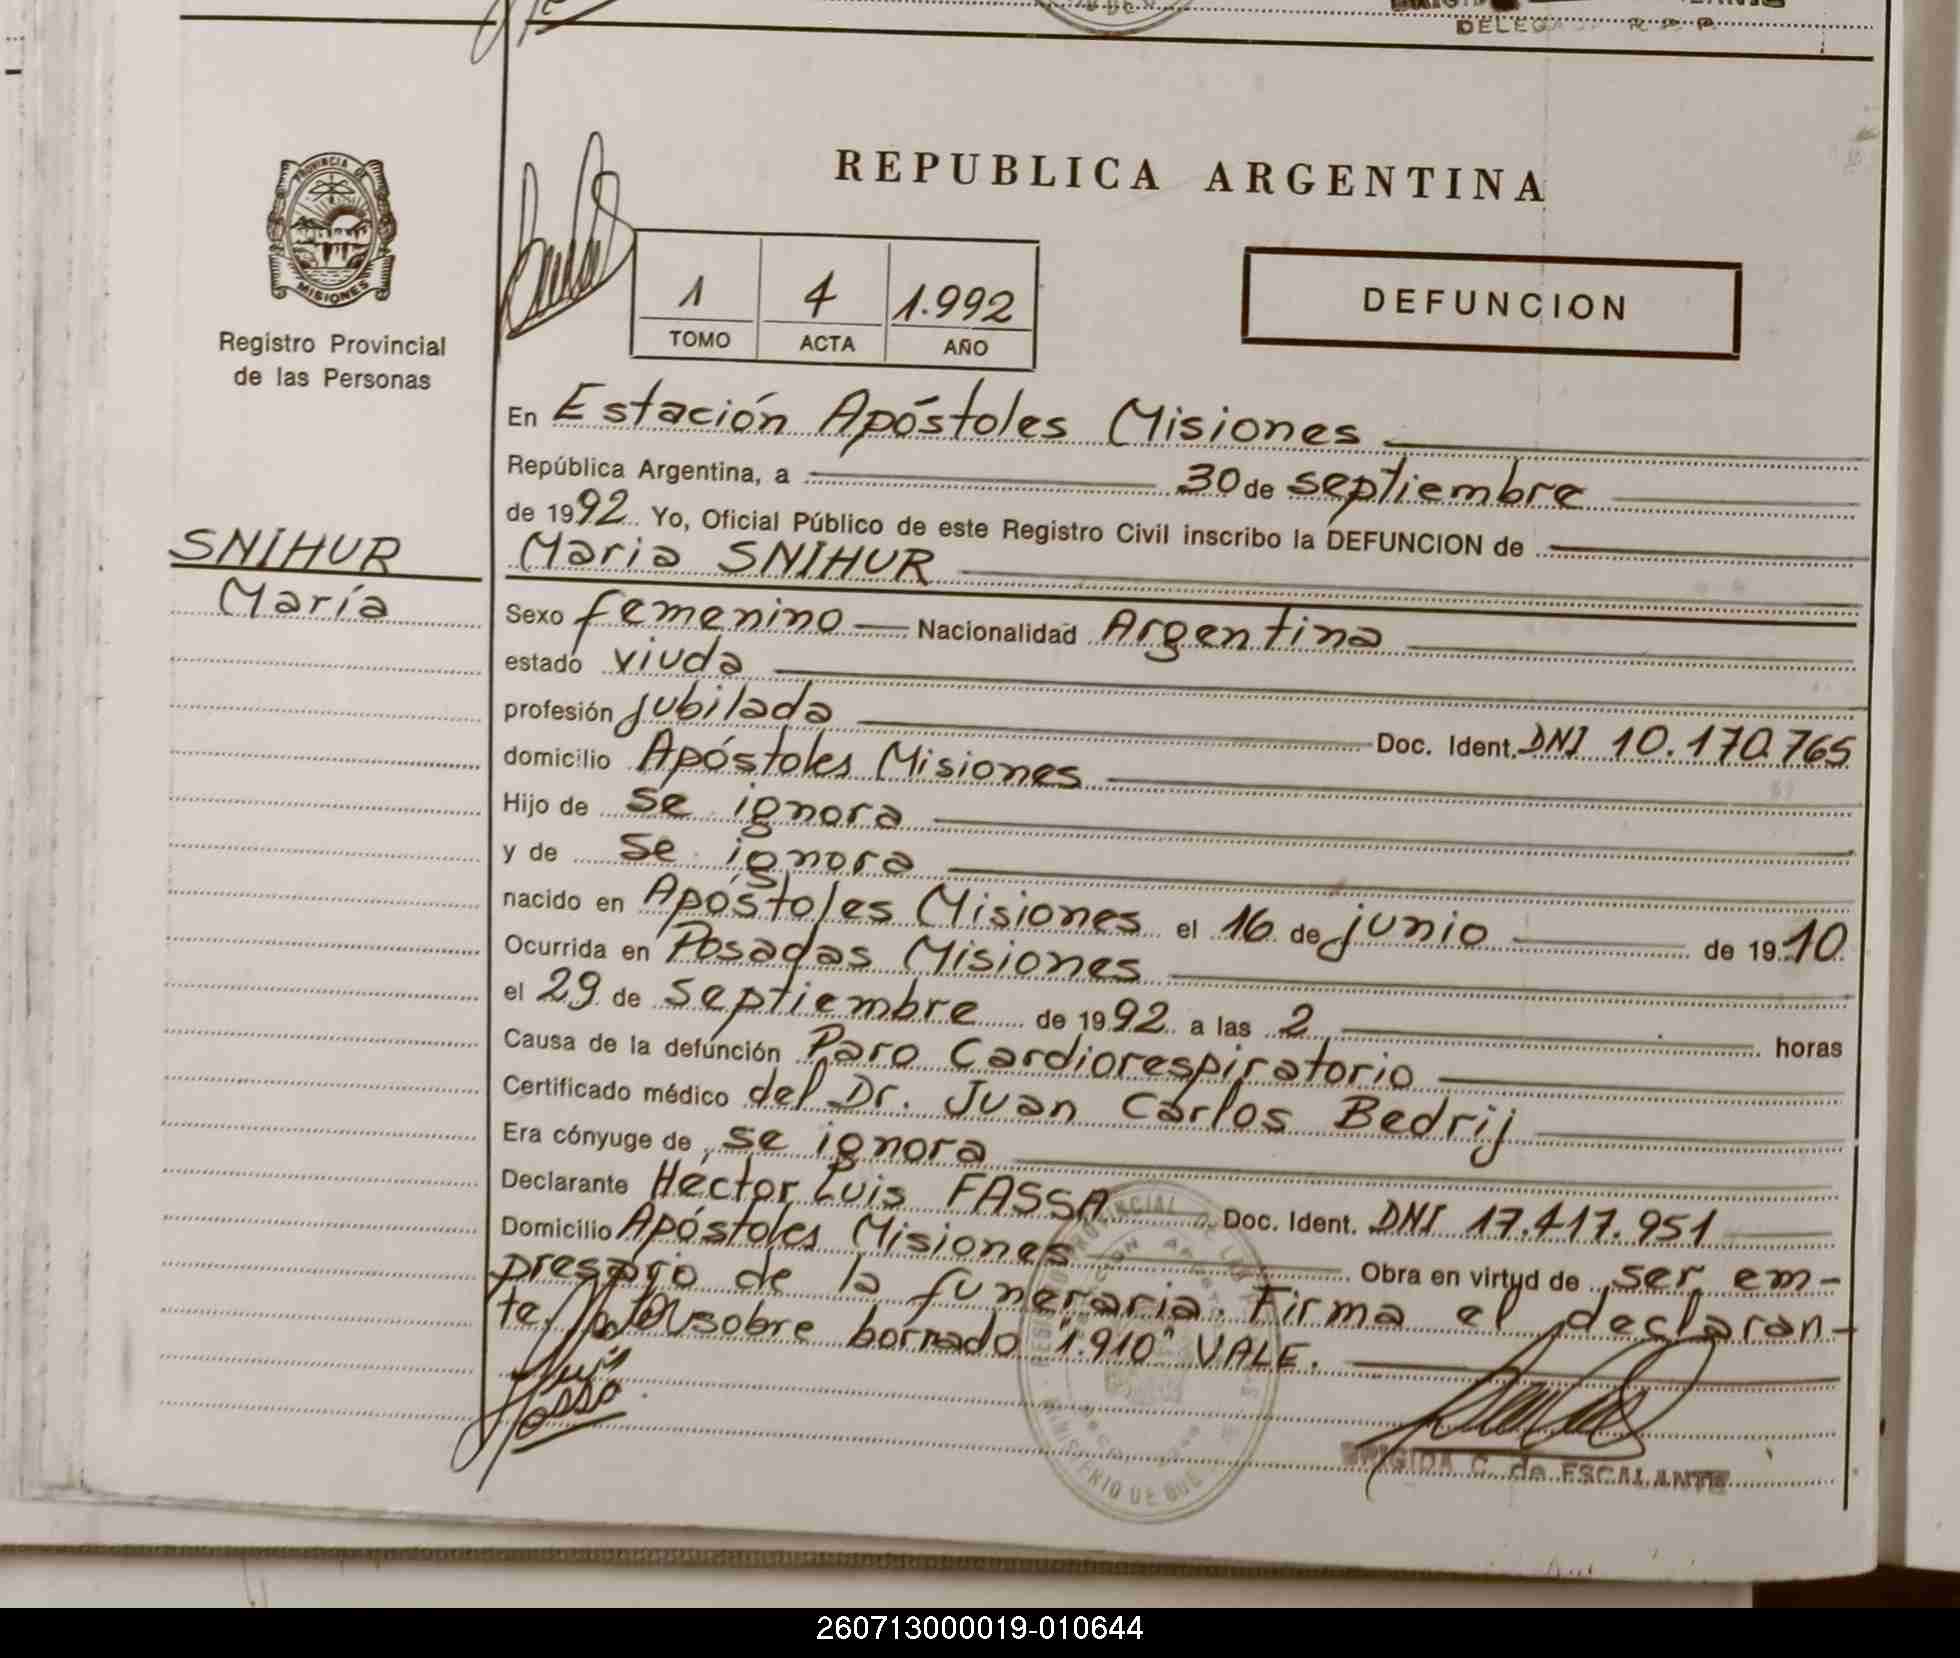 DELEGA R.P.P.
PROVINCIA DE
MISIONES
Registro Provincial
de las Personas
REPUBLICA ARGENTINA
1 4 1.992
TOMO ACTA AÑO
DEFUNCION
En Estación Apóstoles Misiones
República Argentina, a 30 de septiembre
de 1992 Yo, Oficial Público de este Registro Civil inscribo la DEFUNCION de
SNIHUR
Maria SNIHUR
María
Sexo femenino Nacionalidad Argentina
estado viuda
profesión jubilada Doc. Ident. DNI 10.170.765
domicilio Apóstoles Misiones
Hijo de se ignora
y de se ignora
nacido en Apóstoles Misiones el 16 de junio de 1910
Ocurrida en Posadas Misiones
el 29 de septiembre de 1992 a las 2 horas
Causa de la defunción Paro Cardiorespiratorio
Certificado médico del Dr. Juan Carlos Bedrij
Era cónyuge de se ignora
Declarante Héctor Luis FASSA Doc. Ident. DNI 17.417.951
Domicilio Apóstoles Misiones Obra en virtud de ser em-
presario de la funeraria. Firma el declaran-
te. sobre borrado "1.910" VALE.
BRIGIDA C. de ESCALANTE
260713000019-010644